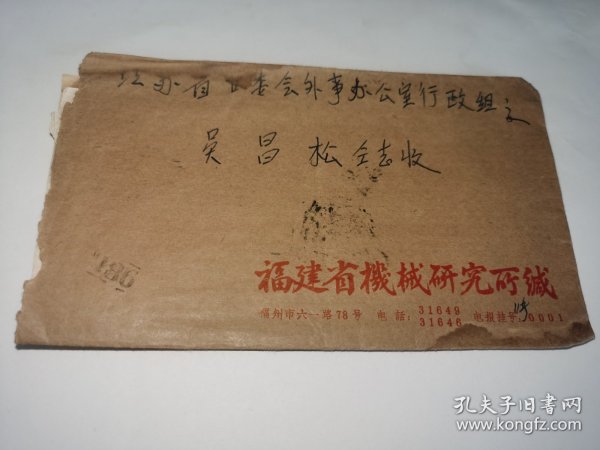 江苏省革委会外事办公室行政组交
吴昌松仝志收
186
福建省機械研究所缄
福州市六一路78号 电话:31649 31646 电报挂号:0001
孔夫子旧书网
www.kongfz.com